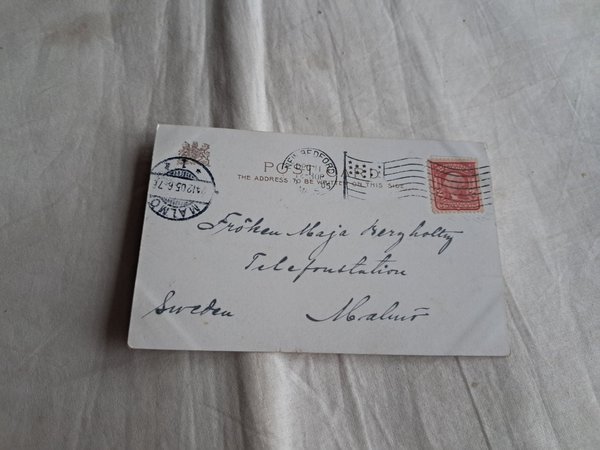 POST CARD
THE ADDRESS TO BE WRITTEN ON THIS SIDE
NEW BEDFORD
MALMÖ
05 6-7
Fröken Maja Bergholtz
Telefonstation
Sweden Malmö